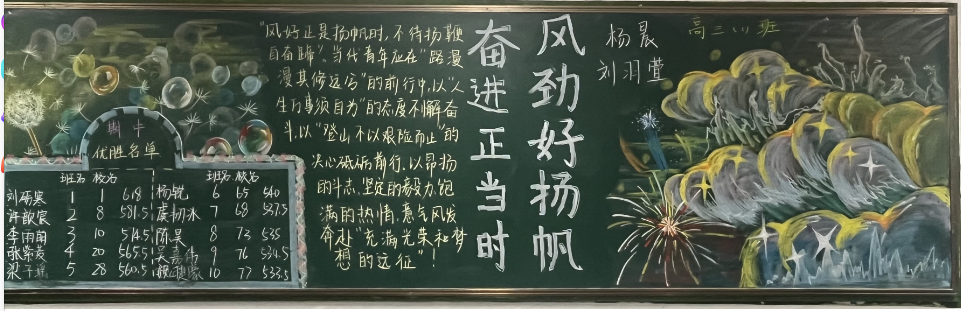 "风好正是扬帆时,不待扬鞭
自奋蹄"。当代青年应在"路漫
漫其修远兮"的前行中,以"人
生万事须自为"的态度不懈奋
斗,以"登山不以艰险而止"的
决心砥砺前行,以昂扬
的斗志,坚定的毅力,饱
满的热情,意气风发
奔赴"充满光荣和梦
想的远征"!
风劲好扬帆
奋进正当时
杨晨
刘羽萱
高二(1)班
期中
优胜名单
班名 校名
1 1 618
2 8 581.5
李雨菌 3 10 574.5
4 20 565.5
5 28 560.5
班名 校名
杨锐 6 65 540
虞初冰 7 68 537.5
陈昊 8 73 535
吴嘉伟 9 76 534.5
10 77 533.5